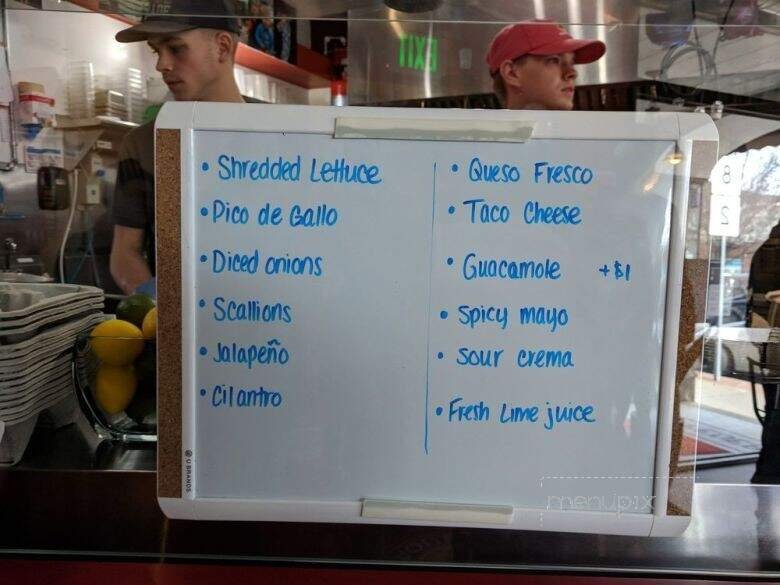 EXIT
• Shredded Lettuce
• Pico de Gallo
• Diced onions
• Scallions
• Jalapeño
• Cilantro
• Queso Fresco
• Taco Cheese
• Guacamole +$1
• Spicy mayo
• Sour crema
• Fresh Lime juice
U BRANDS
8
2
menupix